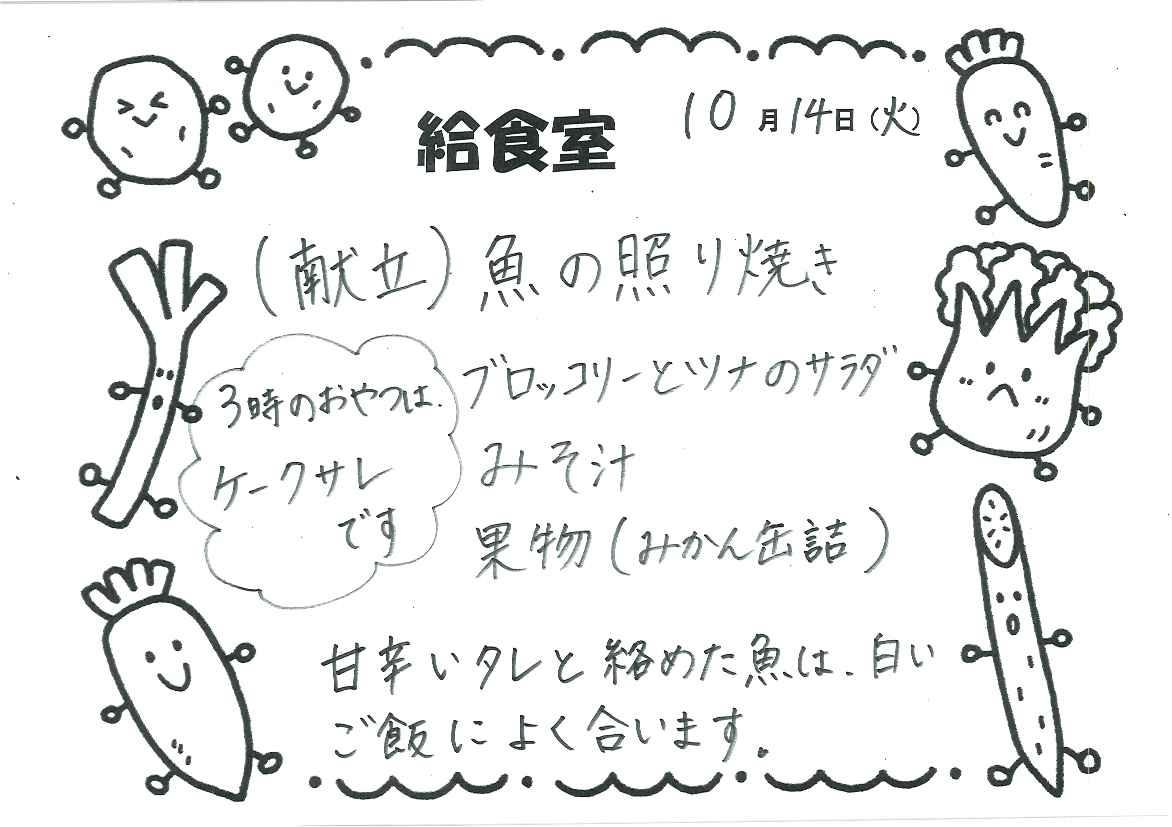 給食室
10月14日(火)
(献立)魚の照り焼き
ブロッコリーとツナのサラダ
みそ汁
果物(みかん缶詰)
3時のおやつは、
ケークサレ
です
甘辛いタレと絡めた魚は、白い
ご飯によく合います。